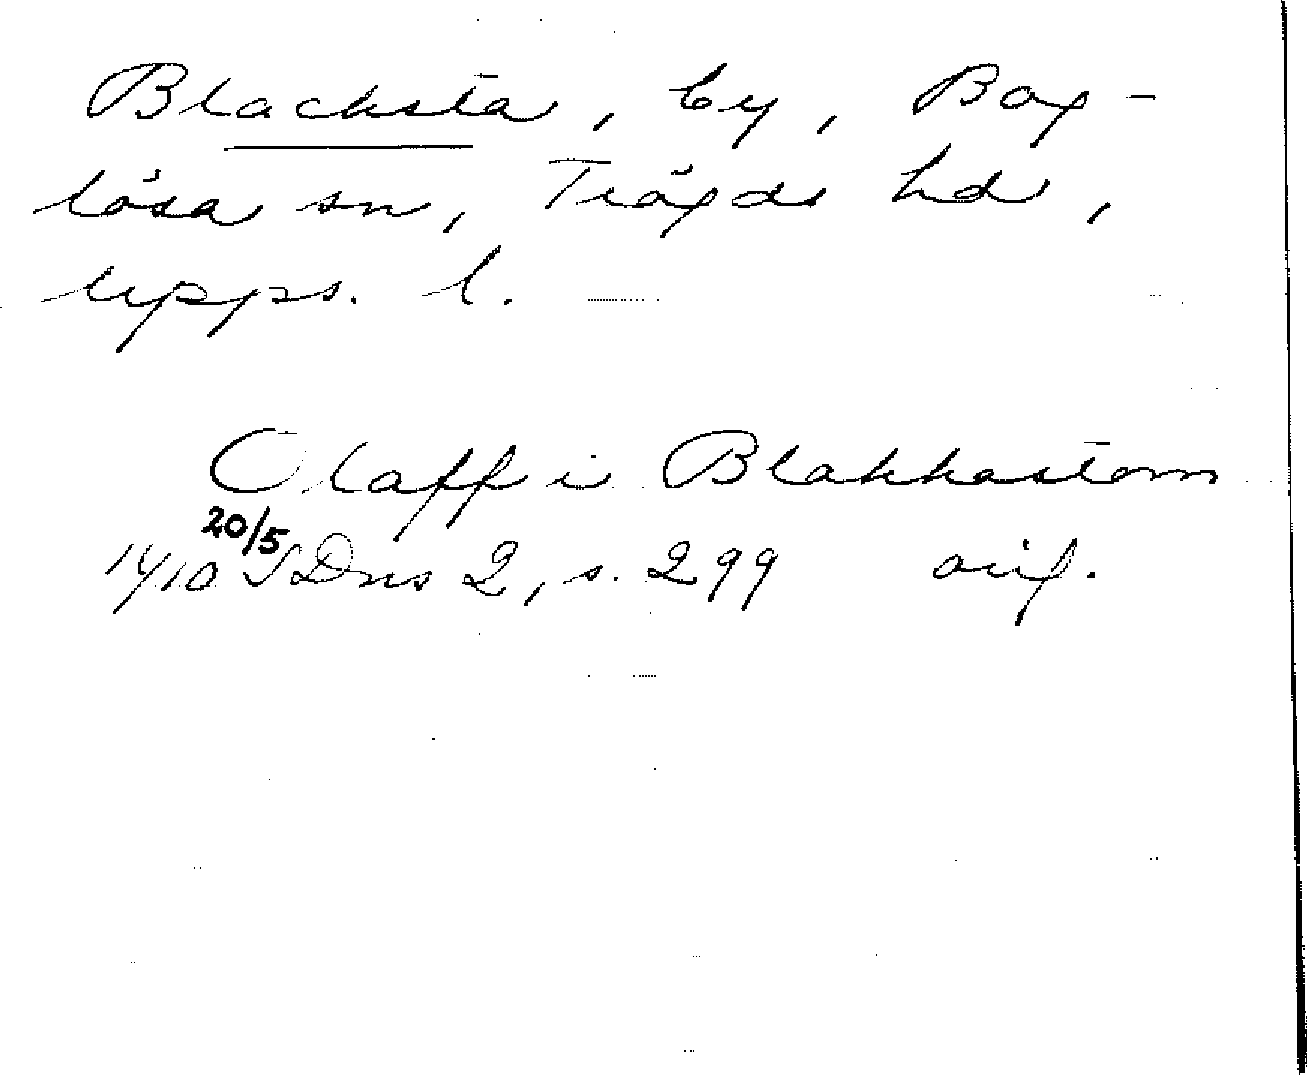 Blacksta, by, Bog-
lösa sn, Trögds hd,
Upps. l.
Olaff i Blakkastom
20/5
1410 SDns 2, s. 299 orig.